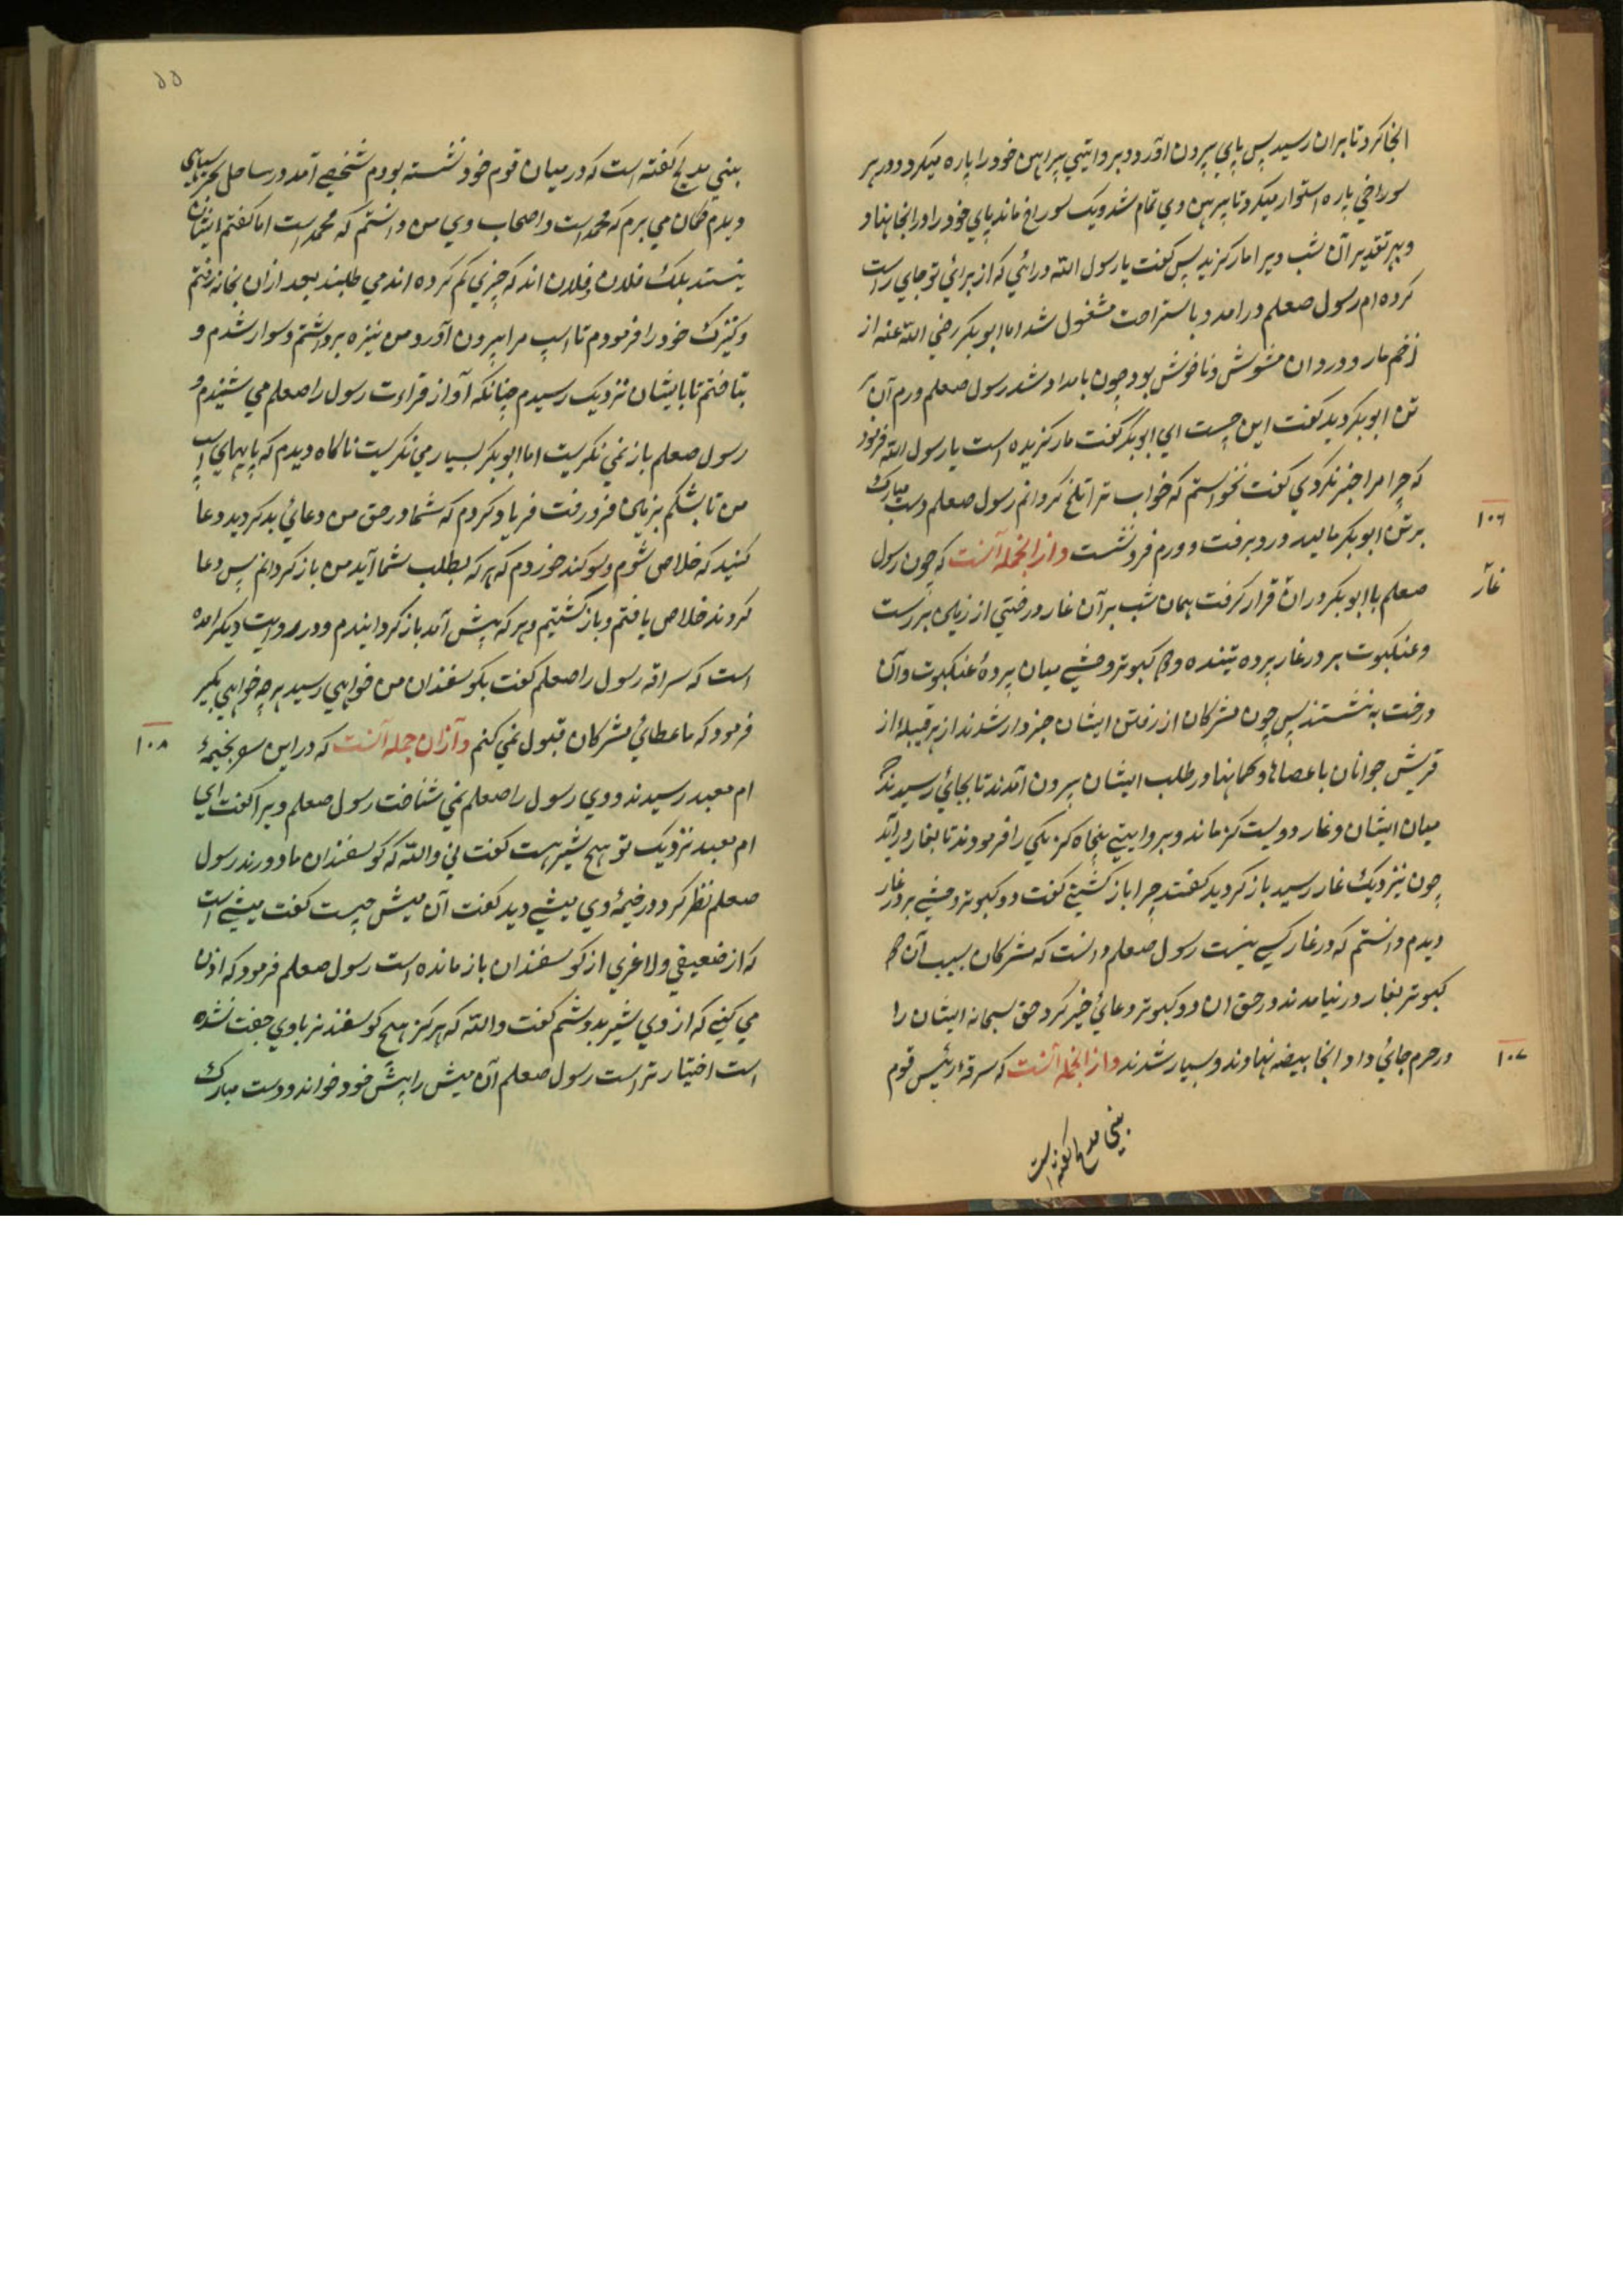 انجا کرد تا بران رسید پس پای بیرون اورد و بروایتی پیراهن خود را پاره میکرد و در هر
سوراخی پاره استوار میکرد تا پیرهن وی تمام شد و یک سوراخ ماند پای خود را در انجا نهاد
و بهر تقدیر آن شب ویرا مار کزید پس کفت یا رسول الله در ائی که از برائی تو جای راست
کرده ام رسول صعلم در امد و باستراحت مشغول شد اما ابو بکر رضی الله عنه از
زخم مار و درد ان مشوش و ناخوش بود چون بامداد شد رسول صعلم ورم آن بر
تن ابو بکر دید کفت این چیست ای ابو بکر کفت مار کزیده است یا رسول الله فرمود
که چرا مرا خبر نکردی کفت نخواستم که خواب ترا تلخ کردانم رسول صعلم دست مبارک
بر تن ابو بکر مالید درد برفت و ورم فرو نشست و از انجمله آنست که چون رسول
۱۰۶
صعلم با ابو بکر در ان قرار کرفت همان شب بر آن غار درختی از زمین بر رست
غار
و عنکبوت بر در غار پرده تنیده و دو کبوتر وحشی میان پرده عنکبوت و آن
درخت به نشستند پس چون مشرکان از رفتن ایشان خبردار شدند از هر قبیله از
قریش جوانان با عصاها و کمانها در طلب ایشان بیرون آمدند تا بجائی رسیدند که
میان ایشان و غار دویست کز ماند و بروایتی پنجاه کز یکی را فرمودند تا بغار در آید
چون نزدیک غار رسید باز کردید کفتند چرا باز کشتی کفت دو کبوتر وحشی بر در غار
دیدم دانستم که در غار کسی نیست رسول صعلم دانست که مشرکان بسبب آن دو
کبوتر بغار در نیامدند در حق ان دو کبوتر دعائی خیر کرد حق سبحانه ایشان را
در حرم جائی داد انجا بیضه نهادند و بسیار شدند و از انجمله آنست که سرقه رئیس قوم
۱۰۷
بنی مدلج کفته است
۵۵
بنی مدلج کفته است که در میان قوم خود نشسته بودم شخصی آمد در ساحل بحر سیاهی
دیدم کمان می برم که محمد است و اصحاب وی من دانستم که محمد است اما کفتم ایشان
نیستند بلک فلان و فلان اند که چیزی کم کرده اند می طلبند بعد از ان بخانه رفتم
و کنیزک خود را فرمودم تا اسپ مرا بیرون آورد من نیزه برداشتم و سوار شدم و
بتاختم تا بایشان نزدیک رسیدم چنانکه آواز قراءت رسول را صعلم می شنیدم و
رسول صعلم باز نمی نکریست اما ابو بکر بسیار می نکریست ناکاه دیدم که پایهای اسپ
من تا بشکم بزمین فرو رفت فریاد کردم که شما در حق من دعائی بد کردید دعا
کنید که خلاص شوم و سوکند خوردم که هر که بطلب شما آید من باز کردانم پس دعا
کردند خلاص یافتم و باز کشتیم و هر که پیش آمد باز کردانیدم و در روایت دیکر امده
است که سراقه رسول را صعلم کفت بکوسفندان من خواهی رسید هر چه خواهی بکیر
فرمود که ما عطائی مشرکان قبول نمی کنم و از ان جمله آنست که در این سفر بخیمهٔ
۱۰۸
ام معبد رسیدند و وی رسول را صعلم نمی شناخت رسول صعلم ویرا کفت ای
ام معبد نزدیک تو هیچ شیر هست کفت نی والله که کوسفندان ما دورند رسول
صعلم نظر کرد در خیمهٔ وی میشی دید کفت آن میش چیست کفت میشی است
که از ضعیفی و لاغری از کوسفندان باز مانده است رسول صعلم فرمود که اذن
می کنی که از وی شیر بدوشم کفت والله که هرکز هیچ کوسفند نر باوی جفت نشده
است اختیار تراست رسول صعلم آن میش را پیش خود خواند و دست مبارک